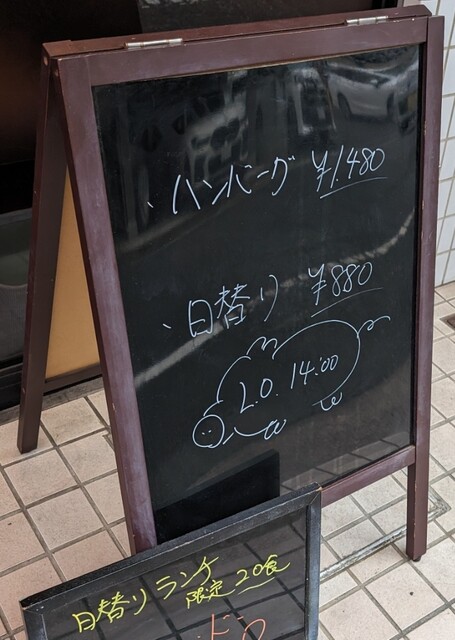 、ハンバーグ ¥1,480
、日替り ¥880
L.O. 14:00
日替りランチ
限定20食